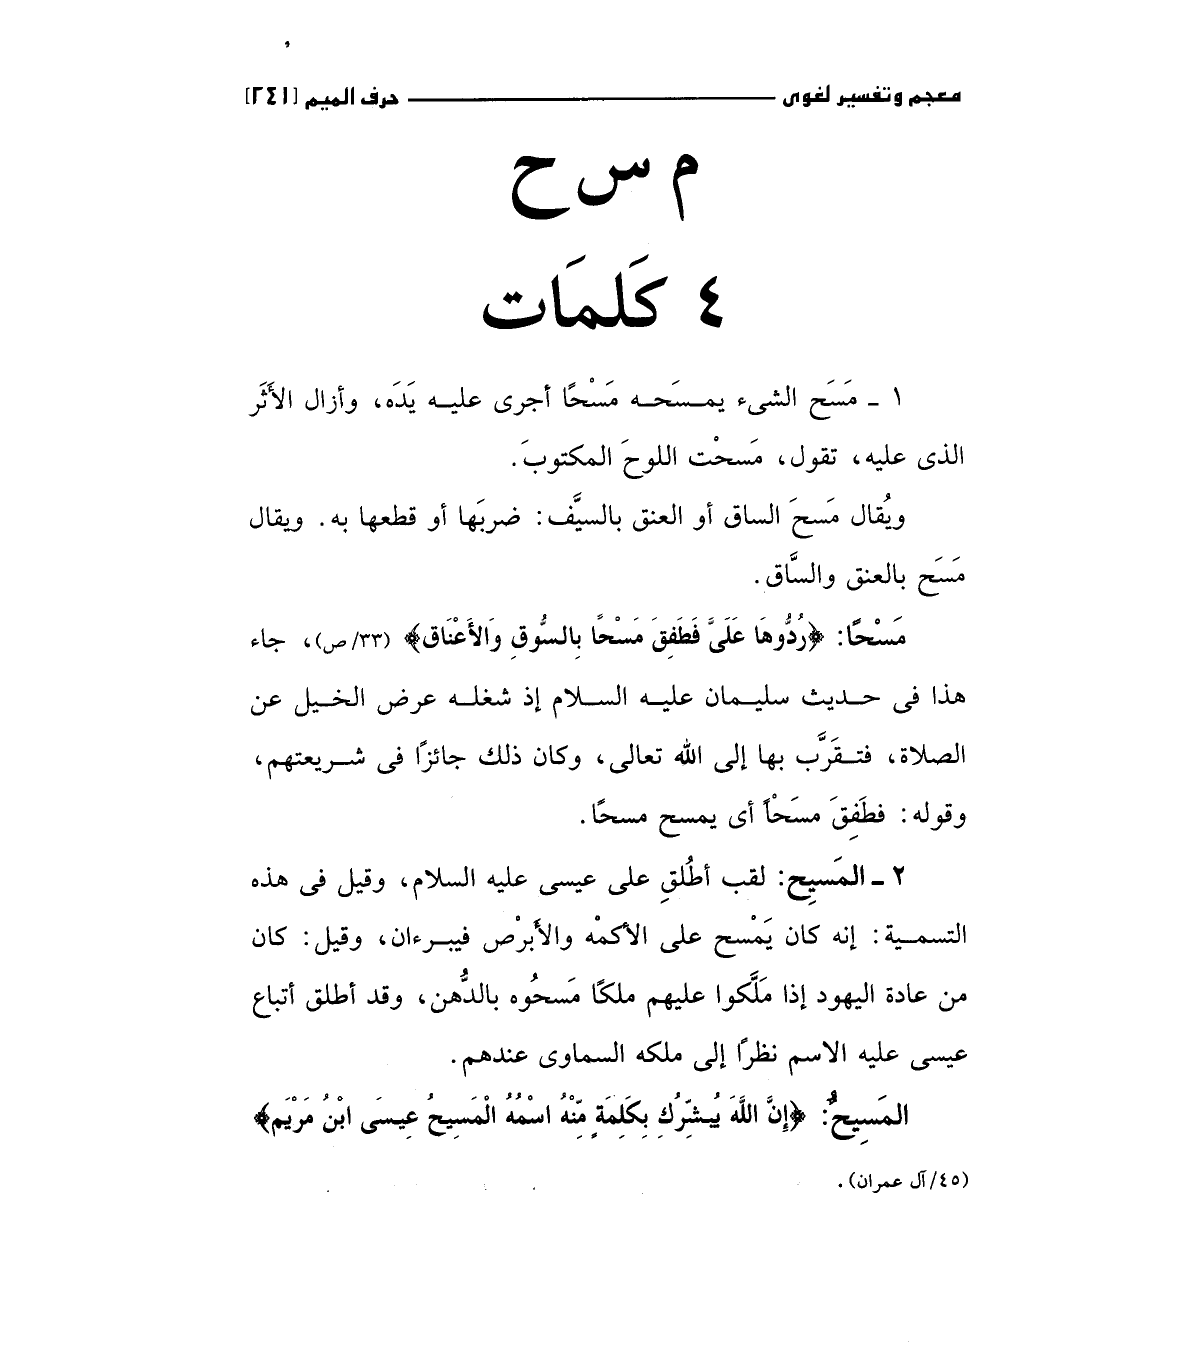 معجم وتفسير لغوى حرف الميم [٢٤١]
م س ح
٤ كَلمَات
١ ـ مَسَح الشىء يمسَحه مَسْحًا أجرى عليه يَدَه، وأزال الأَثَر
الذى عليه، تقول، مَسحْت اللوحَ المكتوبَ.
ويُقال مَسحَ الساق أو العنق بالسيَّف: ضربَها أو قطعها به. ويقال
مَسَح بالعنق والسَّاق.
مَسْحًا: ﴿رُدُّوهَا عَلَىَّ فَطَفِقَ مَسْحًا بِالسُّوقِ وَالأَعْنَاق﴾ (٣٣/ص)، جاء
هذا فى حديث سليمان عليه السلام إذ شغله عرض الخيل عن
الصلاة، فتقَرَّب بها إلى الله تعالى، وكان ذلك جائزًا فى شريعتهم،
وقوله: فطَفِقَ مسَحْاً أى يمسح مسحًا.
٢ ـ المَسيِح: لقب أطُلقِ على عيسى عليه السلام، وقيل فى هذه
التسمية: إنه كان يَمْسح على الأكمْه والأَبرْص فيبرءان، وقيل: كان
من عادة اليهود إذا مَلَّكوا عليهم ملكًا مَسحُوه بالدُّهن، وقد أطلق أتباع
عيسى عليه الاسم نظرًا إلى ملكه السماوى عندهم.
المَسِيحُ: ﴿إِنَّ اللَّهَ يُبشِّرُكِ بِكَلِمَةٍ مِّنْهُ اسْمُهُ الْمَسِيحُ عِيسَى ابْنُ مَرْيَم﴾
(٤٥/آل عمران).